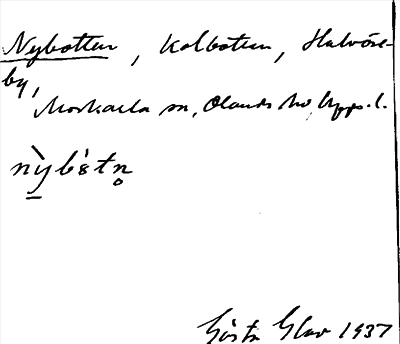 Nybotten, Kolbotten, Halvöre-
by,
Morkarla sn, Olands hd, Upps. l.
nỳbòtn̥
Gösta Glav 1937